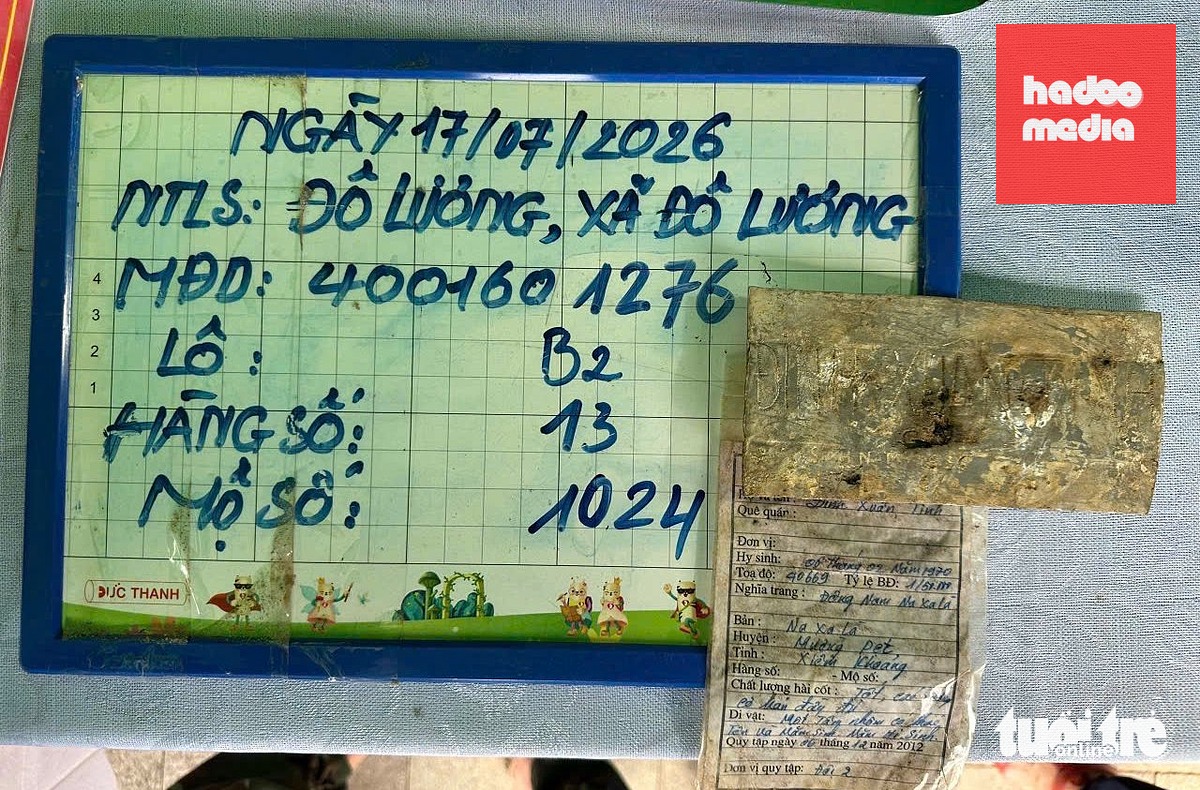 hadoo
media
NGÀY 17/07/2026
NTLS: ĐÔ LƯƠNG, XÃ ĐÔ LƯƠNG
MĐD: 400160 1276
LÔ : B2
HÀNG SỐ: 13
MỘ SỐ: 1024
4
3
2
1
ĐỨC THANH
Đinh Xuân Tình
Quê quán :
Đơn vị:
Hy sinh: 06 tháng 02 Năm 1970
Tọa độ: 40669 Tỷ lệ BĐ:
Nghĩa trang : Đông Nam Na xa lá
Bản : Na xa lá
Huyện : Mường pẹt
Tỉnh : Xiêm Khoảng
Hàng số: - Mộ số:
Chất lượng hài cốt : Tốt,
đầy đủ
Di vật: Một Tấm nhôm có
Tên và Năm Sinh Năm Hy Sinh.
Quy tập ngày 06 tháng 12 năm 2012
Đơn vị quy tập: Đội 2
tuổi trẻ
online